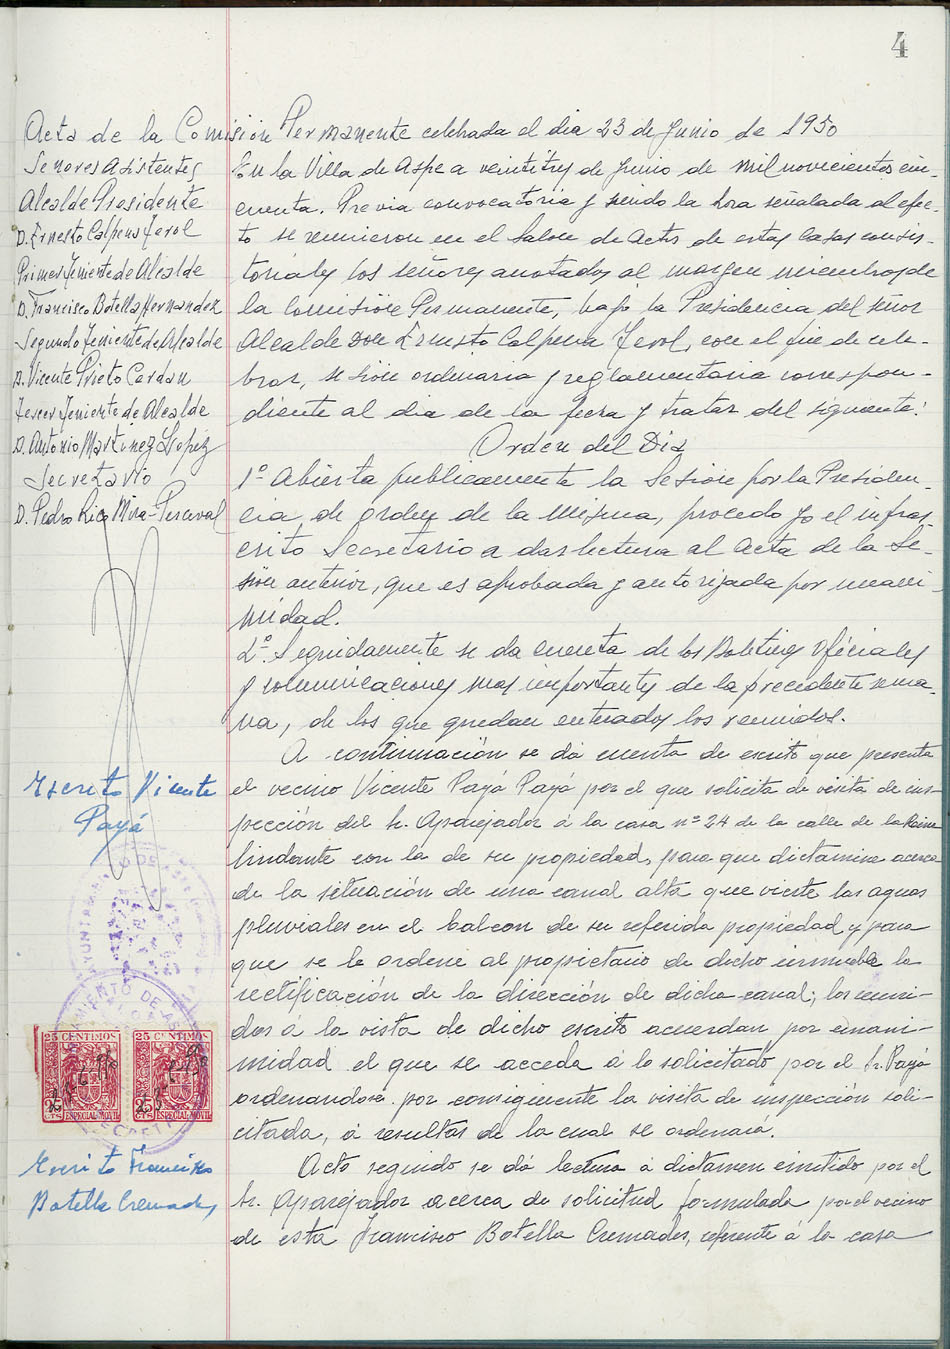 4
Acta de la Comisión Permanente celebrada el dia 23 de Junio de 1950
Señores Asistentes
Alcalde Presidente
D. Ernesto Calpena Ferol
Primer Teniente de Alcalde
D. Francisco Botella Hernandez
Segundo Teniente de Alcalde
D. Vicente Prieto Cerdan
Tercer Teniente de Alcalde
D. Antonio Martinez Lopez
Secretario
D. Pedro Rico Mira-Perceval
En la Villa de Aspe a veintitres de Junio de mil novecientos cin-
cuenta. Previa convocatoria y siendo la hora señalada al efec-
to se reunieron en el Salon de Actos de estas Casas consis-
toriales los señores anotados al margen miembros de
la Comision Permanente, bajo la Presidencia del señor
Alcalde Don Ernesto Calpena Ferol, con el fin de cele-
brar, sesion ordinaria y reglamentaria correspon-
diente al dia de la fecha y tratar del siguiente:
Orden del Dia
1º Abierta publicamente la Sesion por la Presiden-
cia, de orden de la misma, procedo yo el infras-
crito Secretario a dar lectura al Acta de la Se-
sion anterior, que es aprobada y autorizada por unani-
midad.
2º. Seguidamente se da cuenta de los Boletines Oficiales
y comunicaciones mas importantes de la precedente sema-
na, de los que quedan enterados los reunidos.
Escrito Vicente
Payá
A continuación se dá cuenta de escrito que presenta
el vecino Vicente Payá Payá por el que solicita de visita de ins-
pección del Sr. Aparejador á la casa nº 24 de la calle de la Reina
lindante con la de su propiedad, para que dictamine acerca
de la situación de una canal alta que vierte las aguas
pluviales en el balcon de su referida propiedad y para
que se le ordene al propietario de dicho inmueble la
rectificación de la dirección de dicha canal; los reuni-
dos á la vista de dicho escrito acuerdan por unani-
midad el que se acceda á lo solicitado por el Sr. Payá
ordenandose por consiguiente la visita de inspección soli-
citada, á resultas de la cual se ordenará.
25 CENTIMOS 25 CENTIMOS
25 CTS ESPECIAL MOVIL 25 CTS ESPECIAL MOVIL
AYUNTAMIENTO DE ASPE
Escrito Francisco
Botella Cremades
Acto seguido se dá lectura á dictamen emitido por el
Sr. Aparejador acerca de solicitud formulada por el vecino
de esta Francisco Botella Cremades, referente á la casa